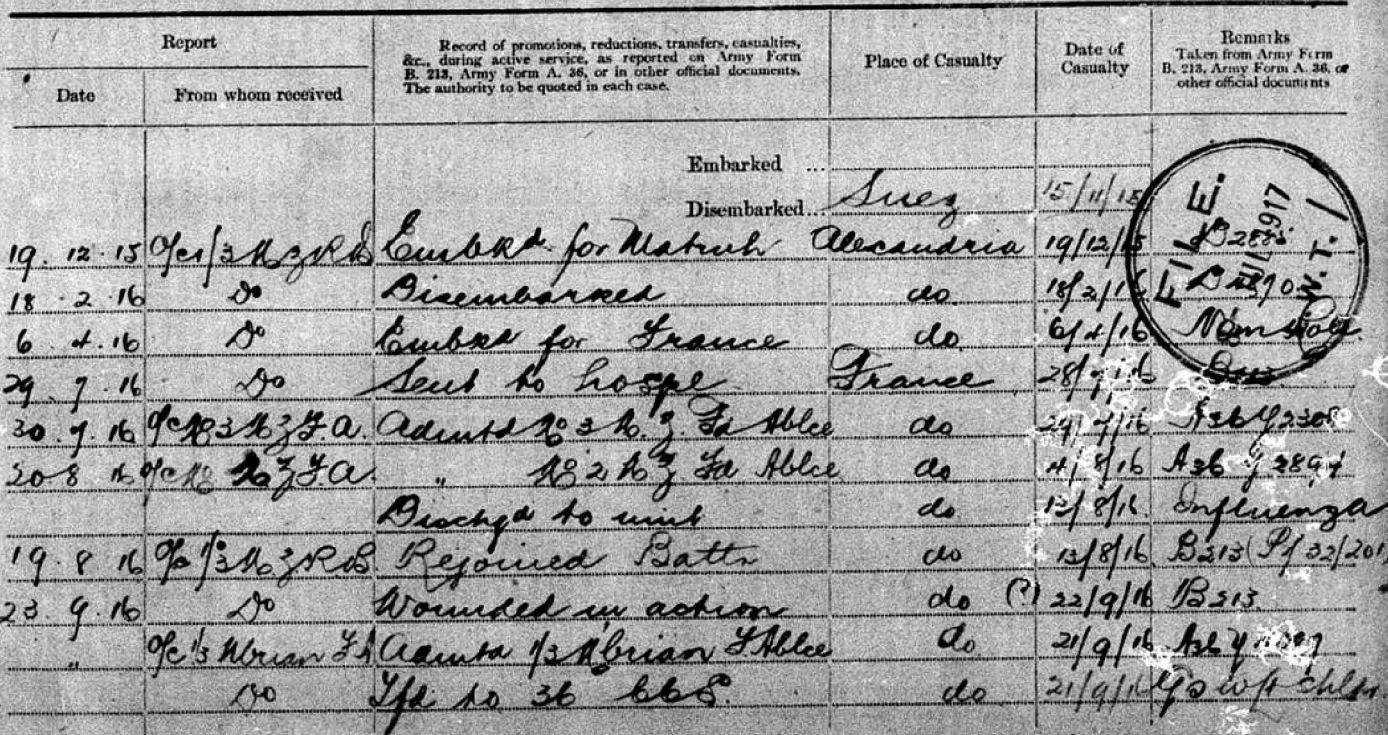 Report
Record of promotions, reductions, transfers, casualties,
&c., during active service, as reported on Army Form
B. 213, Army Form A. 36, or in other official documents.
The authority to be quoted in each case.
Place of Casualty
Date of
Casualty
Remarks
Taken from Army Form
B. 213, Army Form A. 36, or
other official documents
Date
From whom received
Embarked ...
Disembarked... Suez 15/11/15
19. 12. 15 O/c 1/3 N Z R B Embkd. for Matruh Alexandria 19/12/15
18. 2. 16 Do Disembarked do 18/2/16
6. 4. 16 Do Embkd for France do 6/4/16
29. 7. 16 Do Sent to hospl France 28/7/16 B213
30. 7. 16 O/c No 3 N Z F A. Admtd No 3 N. Z. Fd Ablce do 29/7/16 A36
20 8 16 O/c No N Z F A " No 2 N Z Fd Ablce do 4/8/16 A36
Dischgd to unit do 13/8/16 Influenza
19. 8. 16 O/c 1/3 N Z R B. Rejoined Battn do 13/8/16 B213
23. 9. 16 Do Wounded in action do (?) 22/9/16 B213
" O/c 1/3 Nbrian F A Admtd 1/3 Nbrian F Ablce do 21/9/16 A36
Do Tfd to 36 CCS. do 21/9/16
FILE.
W.T.